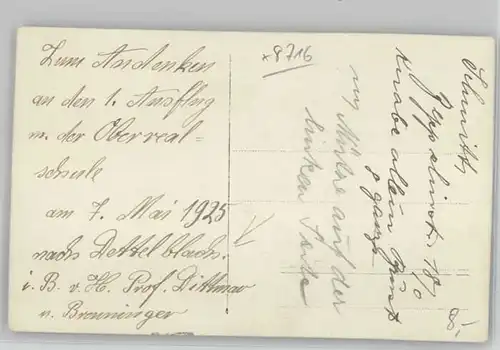 Zum Andenken
an den 1. Ausflug
m. der Oberreal=
schule
am 7. Mai 1925
nach Dettelbach.
i. B. v. H. Prof. Dittmar
u. Brenninger
x8716
Schmitt,
Knabe allein
ganze
mit Mütze auf der
linken Seite